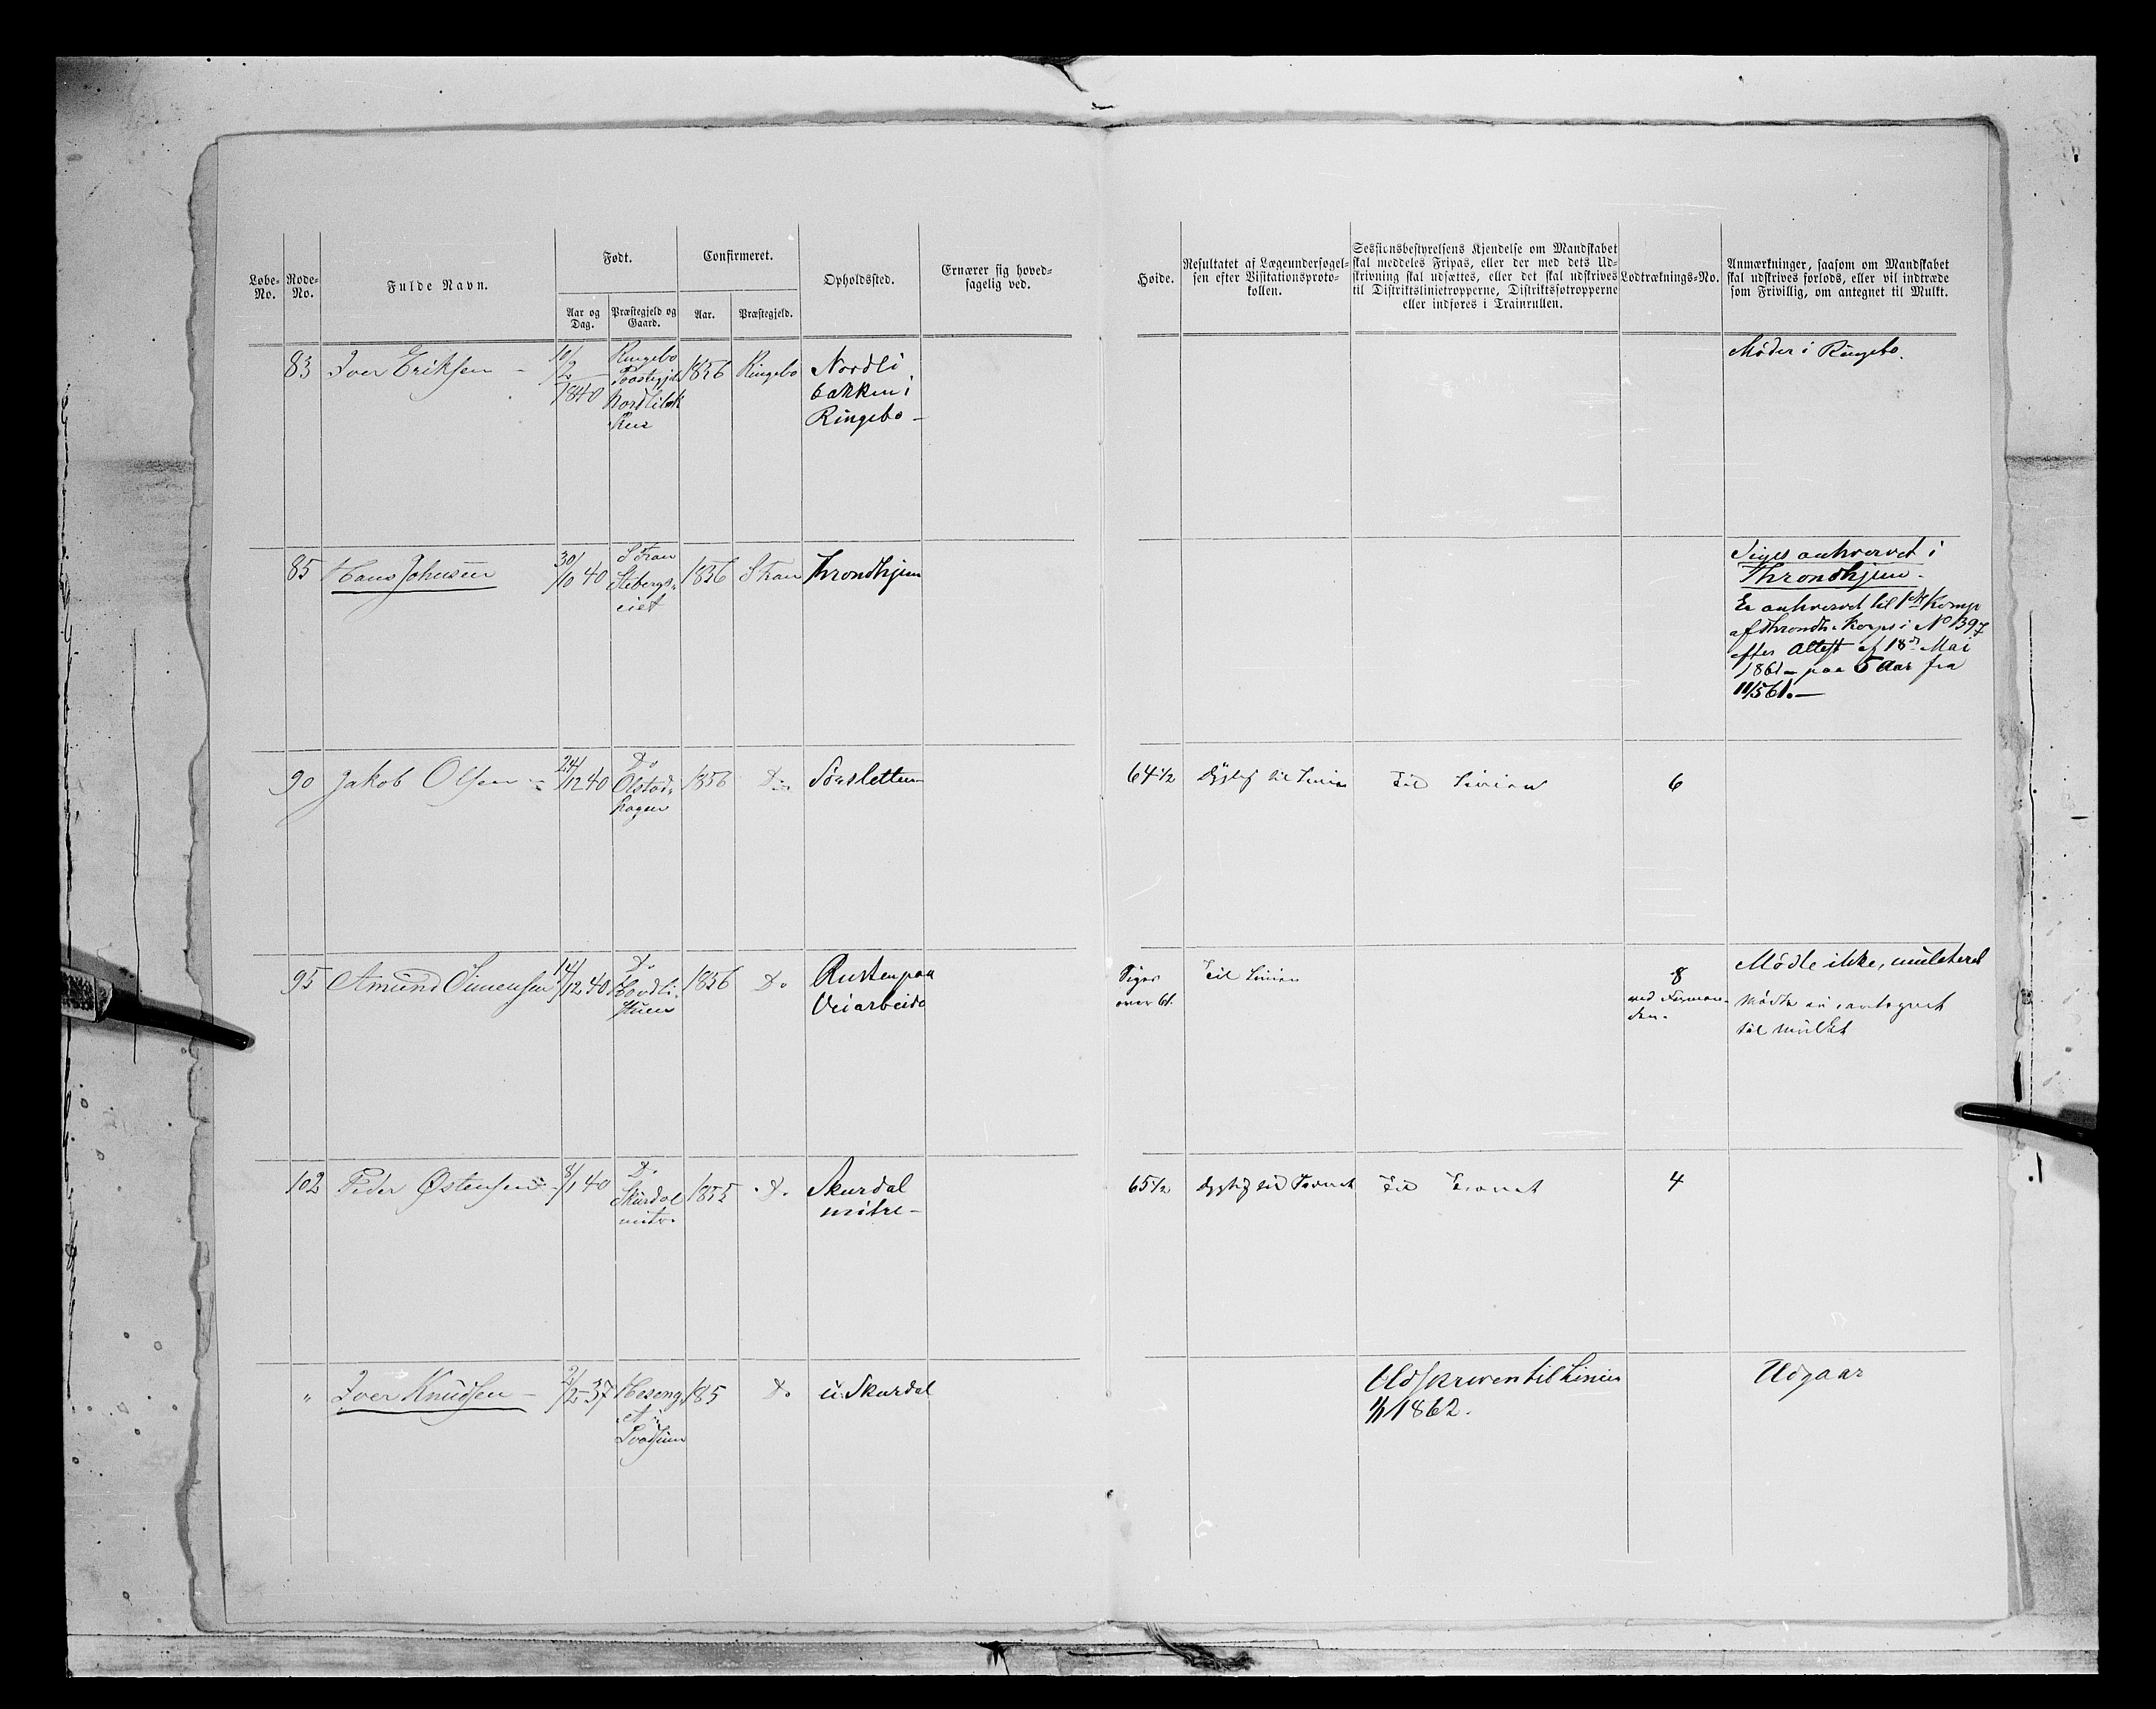 Løbe-No.
Rode-No.
Fulde Navn.
Født.
Aar og Dag.
Præstegjeld og Gaard.
Confirmeret.
Aar.
Præstegjeld.
Opholdssted.
Ernærer sig hoved-
sagelig ved.
Høide.
Resultatet af Lægeundersøgel-
sen efter Visitationsproto-
kollen.
Sessionsbestyrelsens Kjendelse om Mandskabet
skal meddeles Fripas, eller der med dets Ud-
skrivning skal udsættes, eller det skal udskrives
til Distriktslinietropperne, Distriktsfotropperne
eller indføres i Trainrullen.
Lodtræknings-No.
Anmærkninger, saasom om Mandskabet
skal udskrives forlods, eller vil indtræde
som Frivillig, om antegnet til Mulkt.
83 Iver Eriksen - 10/2 1840
Ringebo
Præstegjeld
Nordlibak
ken
1856 Ringebo
Nordli
bakken i
Ringebo -
Møder i Ringebo.
85 Hans Johnsen 30/10 40
Fron
1856 Fron Throndhjem
Siges anhvervet i
Throndhjem.
Er anhvervet til 1ste Komp
af Throndh. Korps i No 1397
efter Attest af 18de Mai
1861 - paa 5 Aar fra
11/5 61. -
90 Jakob Olsen - 24/12 40
Do
Olstad-
hagen
1856 Do Sørsletten
64 1/2 Dygtig til Linien Til Linien 6
95 Amund Simensen 14/12 40
Do
Hovdli-
stuen
1856 Do
Rusten paa
Veiarbeide
Siges
over 61.
Til Linien
8
ved Forman-
den.
Mødte ikke, mulcteret
Mødte ei antegnet
til Mulkt
102 Peder Østensen - 8/1 40
Do
Skurdal
nitre
1855 Do
Skurdal
nitre -
65 1/2 Dygtig til Trainet Til Trainet 4
" Iver Knudsen - 2/2 - 37
et i
Svatsum
185 Do u. Skurdal
Udskreven til Linien
1/1 1862.
Udgaar